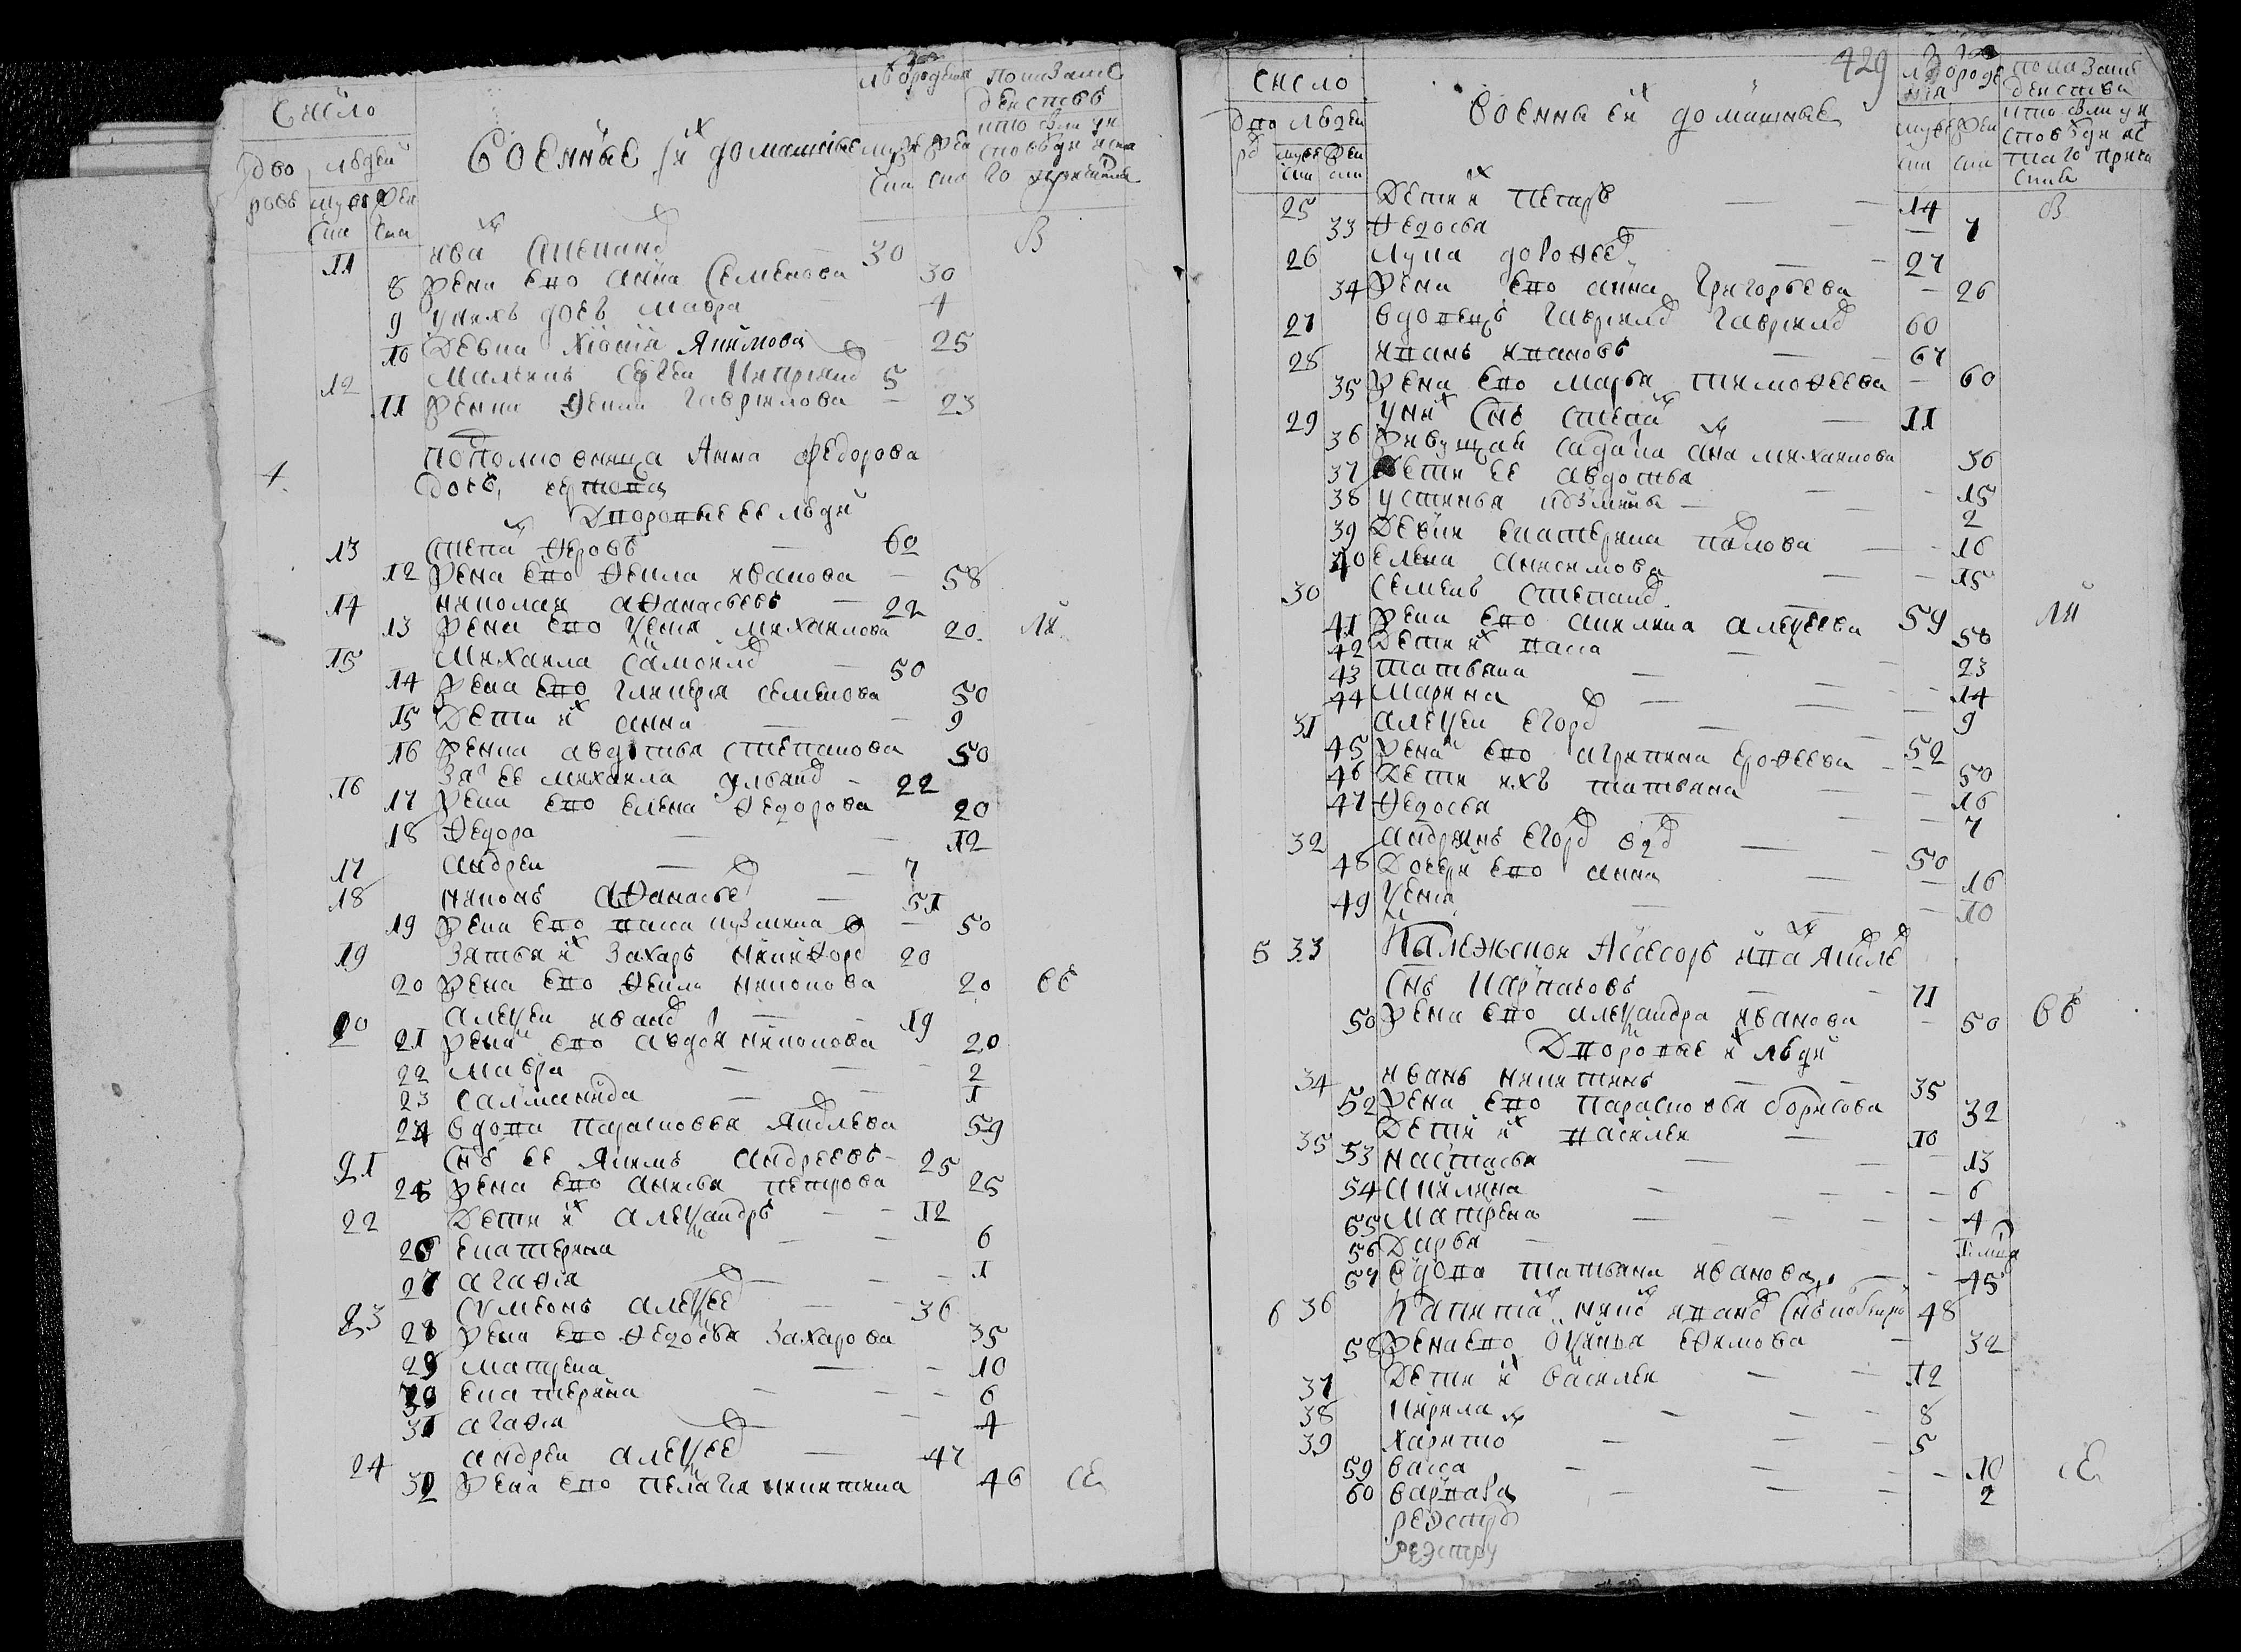 Число
Дво ровъ
людей
муска
жен ска
Военные их домашние
лѣ от рождения
муже ска
жен ска
показание
действъ
кто были у и
сповѣди и ста
го причастия
11 ива Степанов 30 В
8 жена ево анна Семенова 30
9 у нихъ дочь мавра 4
10 Девка Хиония Якимова 25
12 Малчикъ Сергѣи Киприянов 5
11 женка Фекла Гаврилова 23
4 Подполковница Анна Федорова
дочь
Дворовые ее люди
13 Степан 60
12 жена ево Фекла иванова 58
14 николаи афанасьевъ 22
13 жена ево Ксения михаилова 20 ли
15 Михаила Самоилов 50
14 жена ево гликерия семенова 50
15 Дети их анна 9
16 женка авдотья степанова 50
16 Зят ее михаила ульянов 22
17 жена ево елена Федорова 20
18 Федора 12
17 андреи 7
18 никонъ афанасьев 51
19 жена ево васа кузмина 50
19 Зятья их Захаръ никифоров 20
20 жена ево Фекла никонова 20 ве
20 алексеи иванов 19
21 жена ево авдотя никонова 20
22 мавра 2
23 саламанида 1
24 вдова парасковья яковлева 59
21 Снъ ее якимъ андреевъ 25
25 жена ево анисья петрова 25
22 Дети их александръ 12
26 екатерина 6
27 агафия 1
23 Сумеонъ алексеев 36
28 жена ево Федосья захарова 35
29 матрена 10
30 екатерина 6
31 агафия 4
24 андреи алексеев 47
32 жена ево пелагия никитина 46 се
429
Число
дво ро
людеи
муже ска
жен ска
Военны их домашные
лѣ от рожде ния
муже ска
жен ска
показание
действа
кто были у и
сповѣди и с
таго прича
стия
25 Дети их петръ 14 В
33 Федосья 7
26 Лука дорофеев 27
34 жена ево анна григорьева 26
27 вдовецъ гаврила гаврилов 60
28 иванъ ивановъ 67
35 жена ево марья тимофеева 60
29 у них снъ степан 11
36 живущая салдатка анна михаилова 36
37 дети ее авдотья 15
38 устинья кузминa 2
39 Девки екатерина павлова 16
40 елена анисимова 15
30 Семенъ степанов 59
41 жена ево акилина алексеева 50 ли
42 Дети их васа 23
43 татьяна 14
44 марина 9
31 алексеи егоров 52
45 жена ево агрипина ерофеева 50
46 Дети ихъ татьяна 16
47 Федосья 7
32 андриянъ егоров вдов 50
48 Дочери ево анна 16
49 Ксения 10
5 33 Калежской Асесоръ иван яковле
Снъ Карпаковъ 71
50 жена ево александра иванова 50 ве
Дворовые их люди
34 иванъ никитинъ 35
52 жена ево парасковья борисова 32
35 Дети их василеи 10
53 настасья 13
54 акилина 6
55 матрена 4
56 Дарья
57 вдова татьяна иванова 45
6 36 Капитан 48
58 жена ево ксинья ефимова 32
37 Дети их василеи 12
38 Кирила 8
39 харито 5
59 васса 10 се
60 варвара 2
реэстръ
реэстру